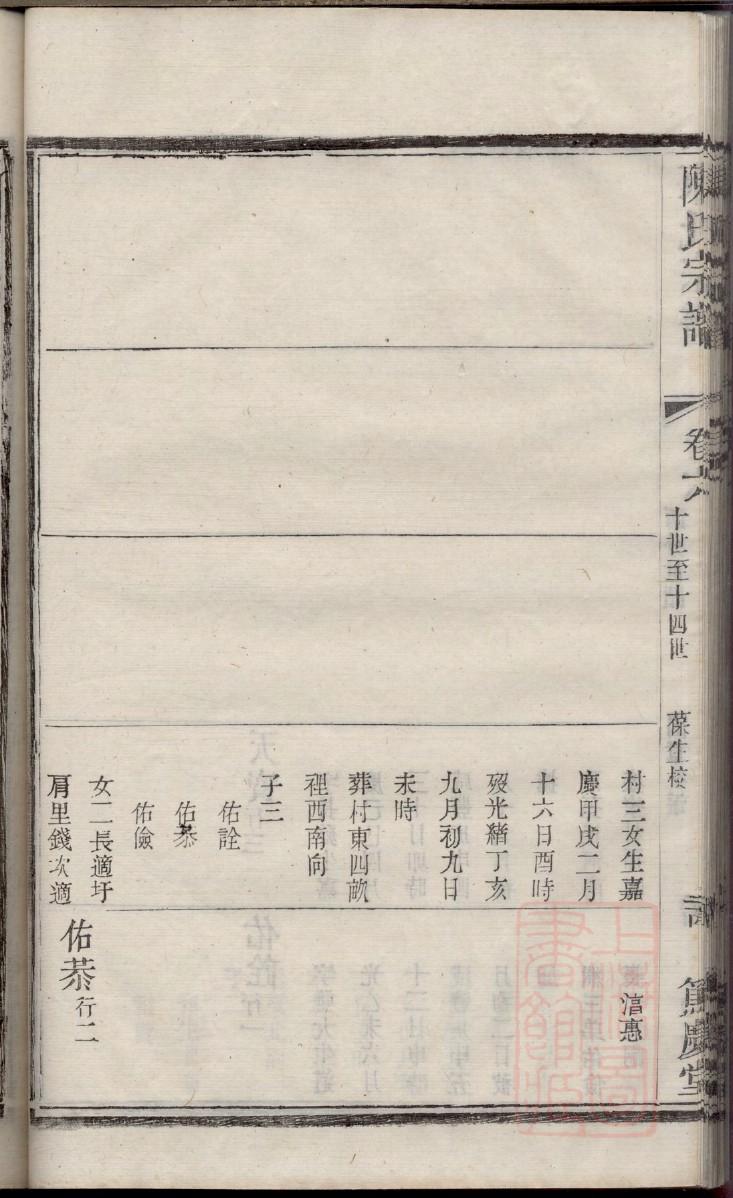 陳氏宗譜
卷六
十世至十四世
葆生校
篤慶堂
村三女生嘉
慶甲戌二月
十六日酉時
歿光緒丁亥
九月初九日
未時
葬村東四畝
裡西南向
子三
佑詮
佑恭
佑儉
女二長適圩
肩里錢次適
湻惠
佑恭行二
上海圖書館藏